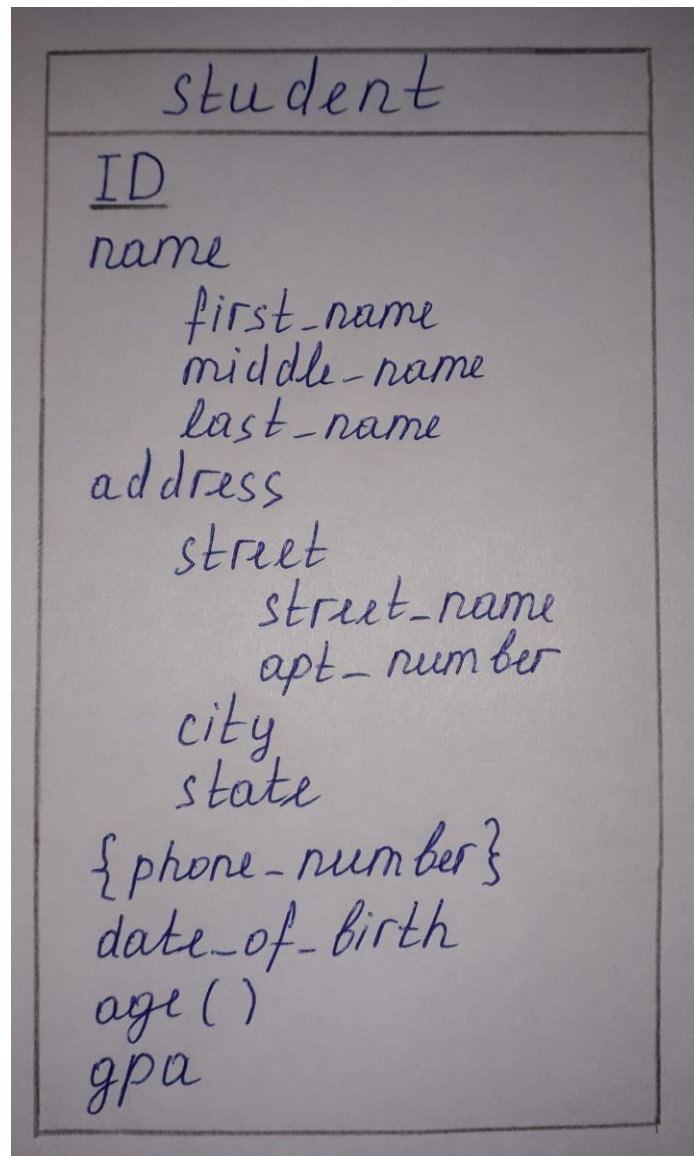 student
ID
name
first_name
middle_name
last_name
address
street
street_name
apt_number
city
state
{phone_number}
date_of_birth
age ( )
gpa